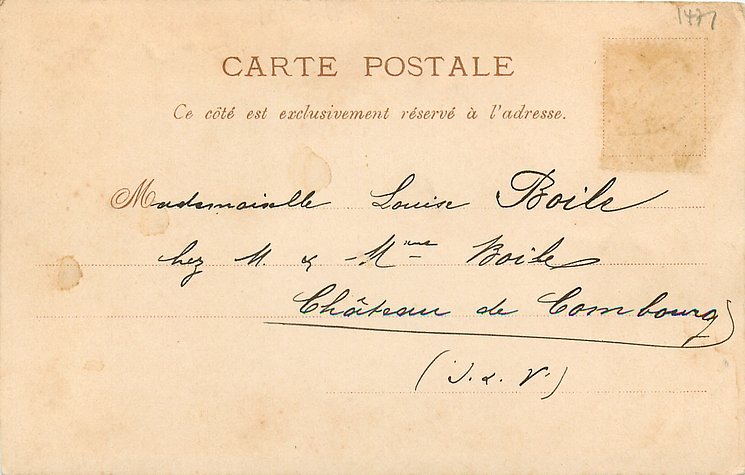 1477
CARTE POSTALE
Ce côté est exclusivement réservé à l'adresse.
Mademoiselle Louise Boile
chez M. & Mme Boile
Château de Combourg
(I. & V.)